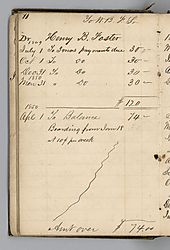 11
To W. B. F. S.
Dr 1849 Henry B. Foster
July 1 To Jonas payments due 30-
Oct 1 To Do 30-
Dec 31 To Do 30-
1850
Mar 31 To Do 30-
$ 120
1850
Apl 1 To Balance 74-
Boarding from Jan 18
at 10/ per week
Amt over $ 74.00